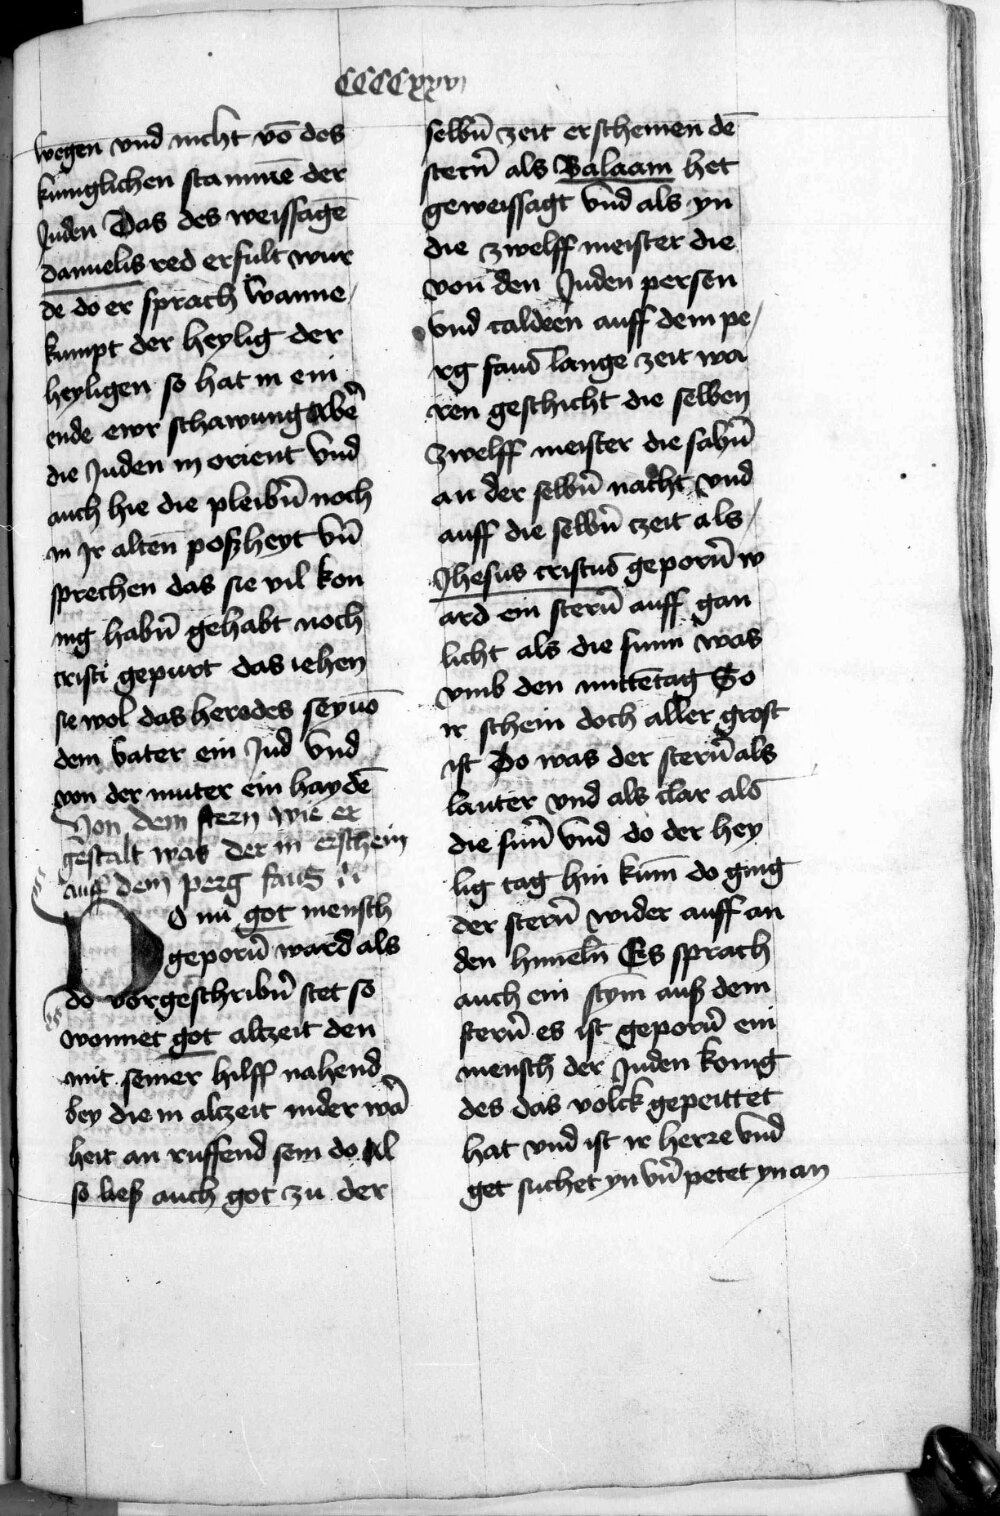 CCCCxxvi
wegen vnd nicht vō des
kuniglichen stammē der
Juden Das des weissagē
danielis red erfult wur
de do er sprach Wanne
kumpt der heylig der
heyligen so hat in ein
ende ewr schawung Aber̄
die Juden in orient vnd
auch hie die pleibn̄ noch
in Jr alten poßheyt vn̄
sprechen das sie vil kon
nig habn̄ gehabt noch
cristi gepurt das iehen
sie wol das herodes sey vō
dem vater ein Jud vnd
von der muter ein haydē
Von dem stern wie er
gestalt was der in erschein
auff dem perg faus
DO nu got mensch
geporn̄ ward als
do vorgeschribn̄ stet so
wonnet got alczeit den
mit seiner hilff nahend
bey die in alczeit in der wā
heit an ruffend sein do Al
so ließ auch got zu der
selbn̄ zeit erscheinen dē
stern̄ als Balaam het
geweissagt vnd als yn
die zwelff meister die
von den Juden persen
vnd caldeen auff dem pe
rg faus lange zeit wa
ren geschicht die selben
zwelff meister die sahn̄
an der selbn̄ nacht vnd
auff die selbn̄ czeit als
Jhesus cristus geporn̄ w
ard ein stern̄ auff gan
licht als die sunn was
vmb den mittētag So
ir schein doch aller grost
ist Do was der stern̄ als
lauter vnd als clar als
die sun̄ vnd do der hey
lig tag hin kum̄ do ging
der stern̄ wider auff an
den himeln̄ Es sprach
auch ein stym auß dem
stern̄ es ist geporn̄ ein
mensch der Juden konig
des das volck gepeittet
hat vnd ist ir herre vnd
get suchet yn vn̄ petet yn an